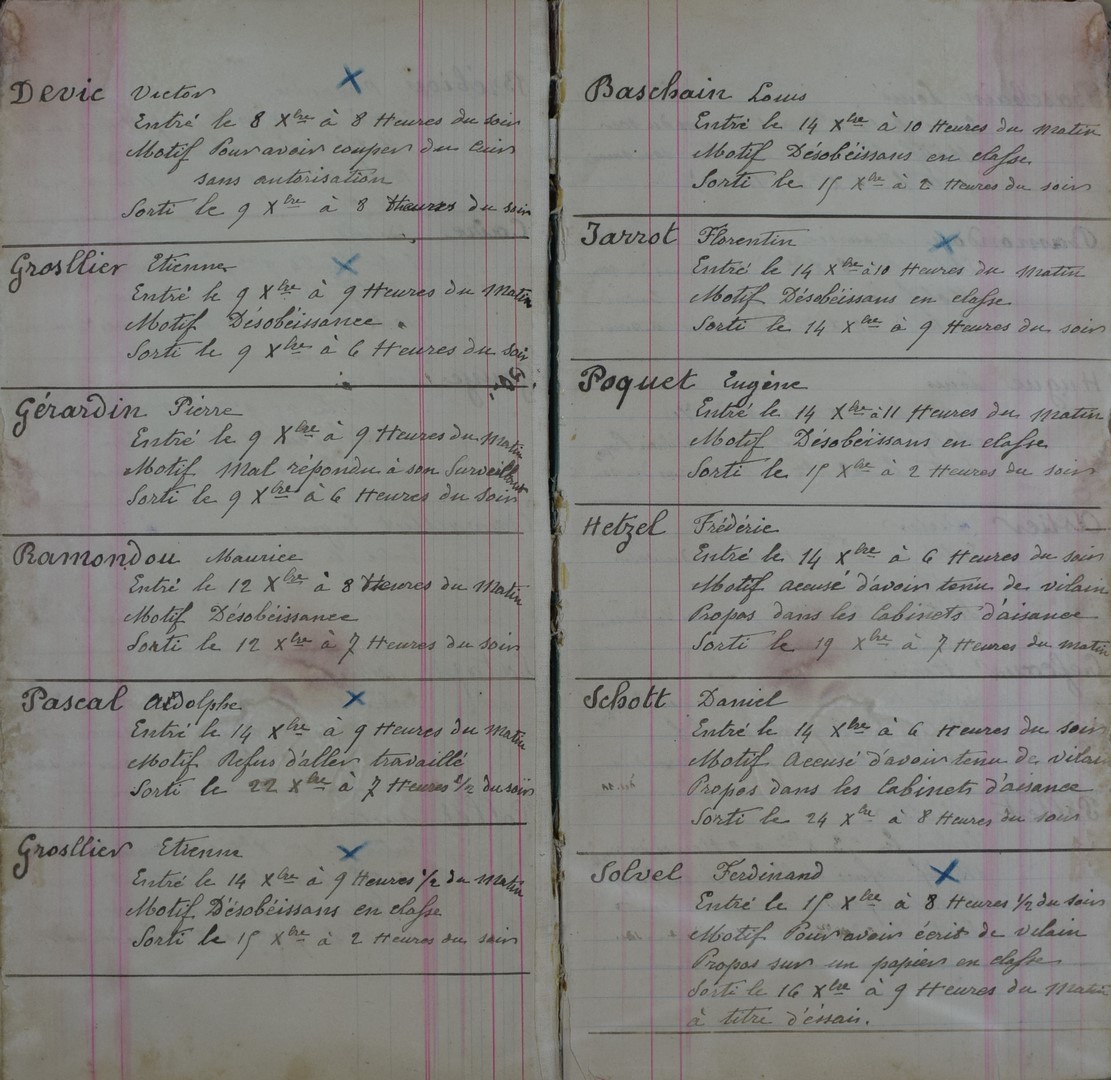 Devic Victor
Entré le 8 Xbre à 8 Heures du soir
Motif Pour avoir couper du Cuir
sans autorisation
Sorti le 9 Xbre à 8 Heures du soir
Grosllier Etienne
Entré le 9 Xbre à 9 Heures du Matin
Motif Désobéissance
Sorti le 9 Xbre à 6 Heures du soir
Gérardin Pierre
Entré le 9 Xbre à 9 Heures du Matin
Motif Mal répondu à son Surveillant
Sorti le 9 Xbre à 6 Heures du soir
Ramondou Maurice
Entré le 12 Xbre à 8 Heures du Matin
Motif Désobéissance
Sorti le 12 Xbre à 7 Heures du soir
Pascal Adolphe
Entré le 14 Xbre à 9 Heures du Matin
Motif Refus d'aller travaillé
Sorti le 22 Xbre à 7 Heures 1/2 du soir
Grosllier Etienne
Entré le 14 Xbre à 9 Heures 1/2 du Matin
Motif Désobéissans en classe
Sorti le 15 Xbre à 2 Heures du soir
Baschain Louis
Entré le 14 Xbre à 10 Heures du Matin
Motif Désobéissans en classe
Sorti le 15 Xbre à 2 Heures du soir
Jarrot Florentin
Entré le 14 Xbre à 10 Heures du Matin
Motif Désobéissans en classe
Sorti le 14 Xbre à 9 Heures du soir
Poquet Eugène
Entré le 14 Xbre à 11 Heures du Matin
Motif Désobéissans en classe
Sorti le 15 Xbre à 2 Heures du soir
Hetzel Frédéric
Entré le 14 Xbre à 6 Heures du soir
Motif accusé d'avoir tenu de vilain
Propos dans les Cabinets d'aisance
Sorti le 19 Xbre à 7 Heures du matin
Schott Daniel
Entré le 14 Xbre à 6 Heures du soir
Motif Accusé d'avoir tenu de vilain
Propos dans les Cabinets d'aisance
Sorti le 24 Xbre à 8 Heures du soir
Solvel Ferdinand
Entré le 15 Xbre à 8 Heures 1/2 du soir
Motif Pour avoir écrit de vilain
Propos sur un papier en classe
Sorti le 16 Xbre à 9 Heures du Matin
à titre d'éssair.